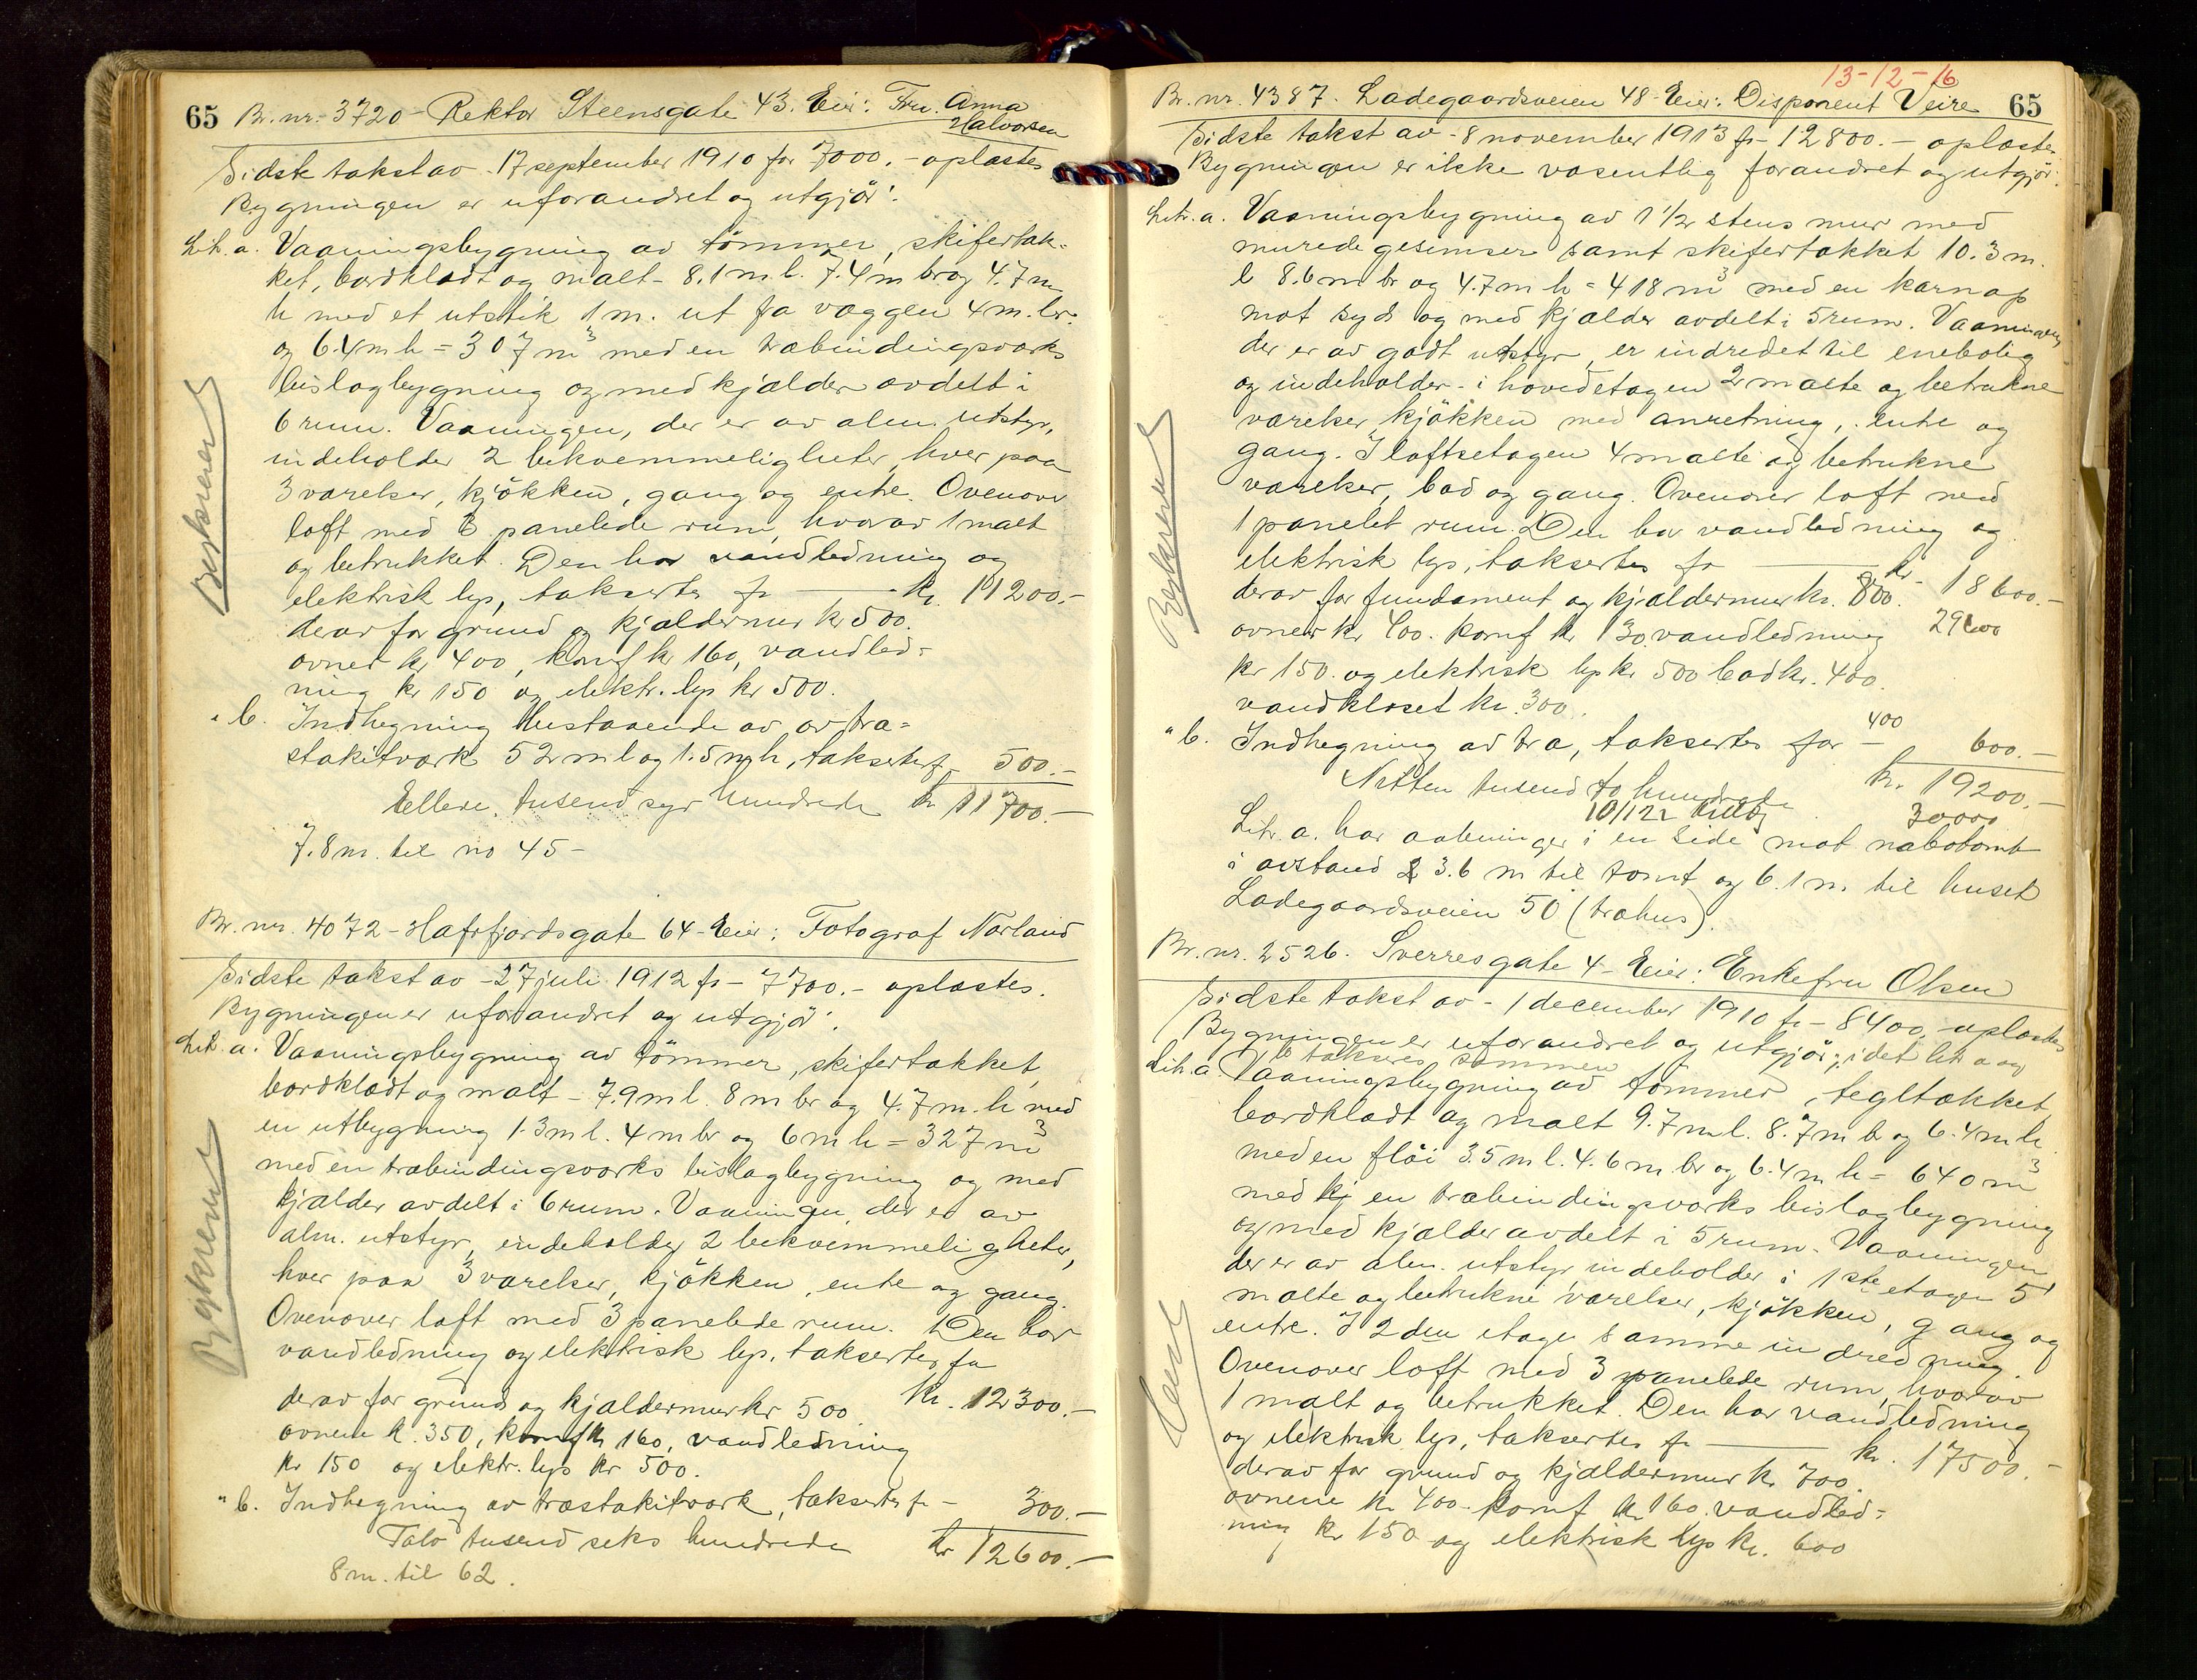 65 Br. nr. 3720 - Rektor Steensgate 43. Eier: Fru. Anna
Halvorsen
Sidste takst av 17 september 1910 for 7000.- oplæstes
Bygningen er uforandret og utgjör:
Lit. a. Vaaningsbygning av tömmer, skifertæk-
ket, bordklædt og malt - 8.1 m l. 7.4 m br. og 4.7 m
h med et utstik 1 m. ut fra væggen 4 m. br.
og 6.4 m h = 307 m3 med en træbindingsværks
bislagbygning og med kjælder avdelt i
6 rum. Vaaningen, der er av alm. utstyr,
indeholder 2 bekvemmeligheter, hver paa
3 værelser, kjökken, gang og entre. Ovenover
loft med 3 panelede rum, hvorav 1 malt
og betrukket. Den har vandledning og
elektrisk lys, taksertes for kr. 11200.-
derav for grund og kjældermur kr 500.
ovner kr 400, komf kr 160, vandled-
ning kr 150 og elektr. lys kr 500.
" b. Indhegning bestaaende av av træ-
stakitværk 52 m l og 1.5 m h, taksertes f. 500.-
Elleve tusend syv hundrede kr 11700.-
7.8 m. til no 45 -
Beskrevet
Br. nr. 4072 - Hafrsfjordsgate 64 - Eier: Fotograf Norland
Sidste takst av - 27 juli 1912 fr - 7700.- oplæstes.
Bygningen er uforandret og utgjör:
Lit. a. Vaaningsbygning av tömmer, skifertækket,
bordklædt og malt - 7.9 m l. 8 m br og 4.7 m. h med
en utbygning 1.3 m l. 4 m br og 6 m h = 327 m3
med en træbindingsværks bislagbygning og med
kjælder avdelt i 6 rum. Vaaningen, der er av
alm. utstyr, indeholder 2 bekvemmeligheter,
hver paa 3 værelser, kjökken, entre og gang.
Ovenover loft med 3 panelede rum. Den har
vandledning og elektrisk lys, taksertes for
kr. 12300.-
derav for grund og kjældermur kr 500
ovnene k. 350, komf kr 160, vandledning
kr 150 og elektr. lys kr 500.
" b. Indhegning av træstakitværk, taksertes fr - 300.-
Tolv tusend seks hundrede kr 12600.-
8 m. til 62.
13-12-16
Br. nr. 4387. Ladegaardsveien 48 - Eier: Disponent Veire 65
Sidste takst av - 8 november 1913 fr - 12800.- oplæstes
Bygningen er ikke væsentlig forandret og utgjör:
Litr. a. Vaaningsbygning av 1 1/2 stens mur med
murede gesimser samt skifertækket 10.3 m.
l 8.6 m br og 4.7 m h = 418 m3 med en karnap
mot syd og med kjælder avdelt i 5 rum. Vaaningen,
der er av godt utstyr, er indredet til enebolig
og indeholder - i hovedetagen 2 malte og betrukne
værelser, kjökken med anretning, entre og
gang. I loftsetagen 4 malte og betrukne
værelser, bad og gang. Ovenover loft med
1 panelet rum. Den har vandledning og
elektrisk lys, taksertes fr kr - 18600.-
derav for fundament og kjældermur kr. 800.
29600
ovner kr 400. komf kr 130, vandledning
kr 150. og elektrisk lys kr 500 bad kr. 400.
vandkloset kr. 300.
" b. Indhegning av træ, taksertes for - 400 600.-
Nitten tusend to hundrede kr. 19200.-
10/122 30000
Litr a. har aabninger i en side mot nabotomt
i avstand 3.6 m til tomt og 6.1 m. til huset
Ladegaardsveien 50 (træhus).
Beskrevet
Br. nr. 2526. Sverresgate 4 - Eier: Enkefru Olsen
Sidste takst av - 1 december 1910 fr - 8400,- oplæstes
Bygningen er uforandret og utgjör; idet litr a og
b takseres sammen
Lit. a. Vaaningsbygning av tömmer, tegltækket,
bordklædt og malt 9.7 m l. 8.7 m b og 6.4 m h
med en flöi 3.5 m l. 4.6 m br og 6.4 m h = 640 m3
med kj en træbindingsværks bislagbygning
og med kjælder avdelt i 5 rum. Vaaningen
der er av alm. utstyr, indeholder i 1ste etagen 5
malte og betrukne værelser, kjökken, gang og
entre. I 2den etage samme indredning.
Ovenover loft med 3 panelede rum, hvorav
1 malt og betrukket. Den har vandledning
og elektrisk lys, taksertes fr kr. 17500.-
derav for grund og kjældermur kr 700.
ovnene kr 400. komf kr 160, vandled-
ning kr 150 og elektrisk lys kr. 600